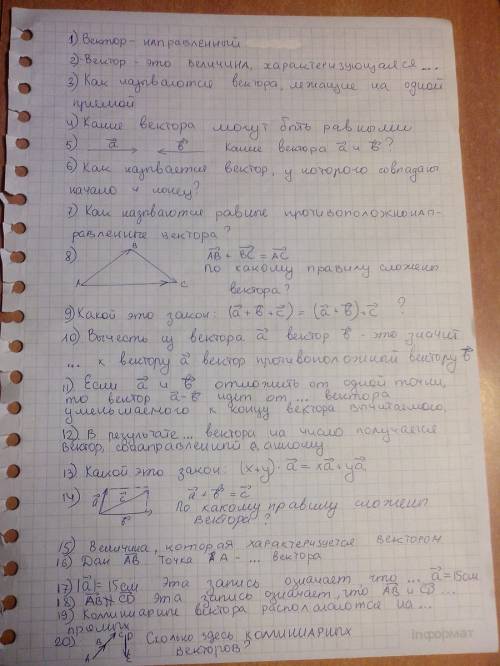 1) Вектор - направленный
2) Вектор - это величина, характеризующаяся ...
3) Как называются вектора, лежащие на одной
прямой
4) Какие вектора могут быть равными
5) a b Какие вектора a и b?
6) Как называется вектор, у которого совпадают
начало и конец?
7) Как называются равные противоположнонап-
равленные вектора?
8) A B C AB + BC = AC
По какому правилу сложены
вектора?
9) Какой это закон: (a + b + c) = (a + b) + c ?
10) Вычесть из вектора a вектор b - это значит
... к вектору a вектор противоположный вектору b
11) Если a и b отложить от одной точки,
то вектор a - b идет от ... вектора
уменьшаемого к концу вектора вычитаемого.
12) В результате ... вектора на число получается
вектор, сонаправленный данному
13) Какой это закон: (x+y) · a = xa + ya
14) a c b a + b = c
По какому правилу сложены
вектора?
15) Величина, которая характеризуется вектором
16) Дан AB. Точка A - ... вектора
17) |a| = 15 см. Эта запись означает, что ... a = 15 см
18) AB CD Эта запись означает, что AB и CD ...
19) Коллинарные вектора располагаются на ...
прямых
20) A B C D E Сколько здесь коллинарных
векторов?
інформат